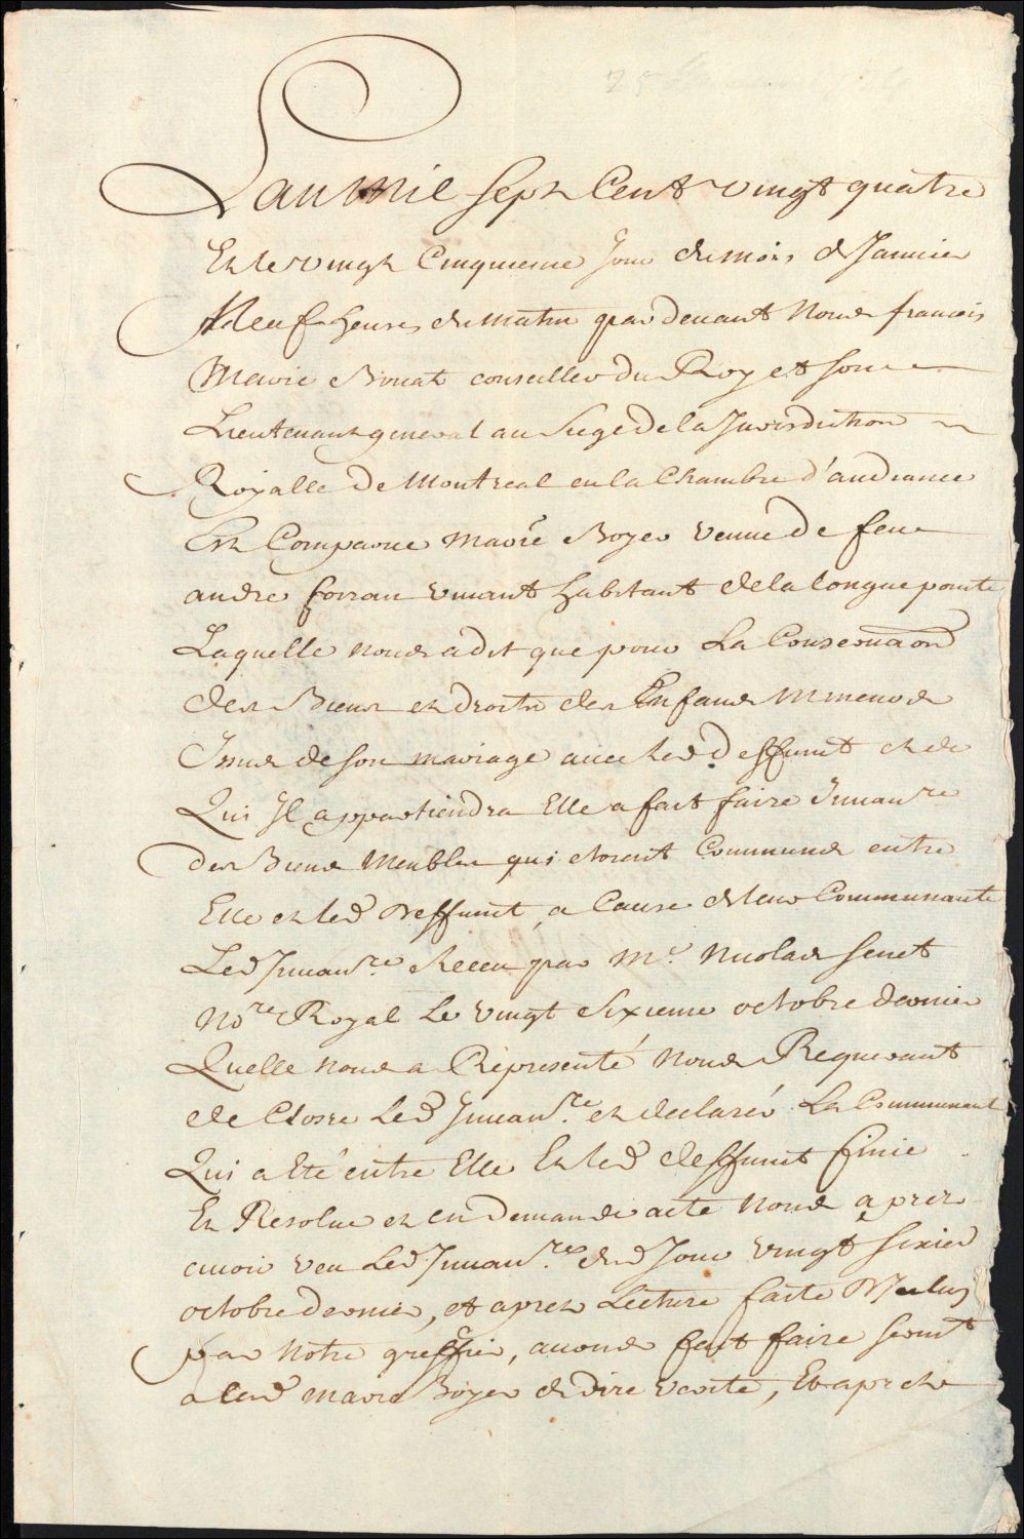 Lan mil sept Cent vingt quatre
Et le vingt Cinquiesme Jour du mois de Januier
Neuf heures du matin par deuant Nous francois
Marie Bouat conseiller du Roy et son
Lieutenant general au Siege de la Jurisdiction
Royalle de Montreal en la Chambre d'audiance
Est Comparue Marie Boyer veuue de feu
andre forran viuant habitant de la longue pointe
Laquelle nous a dit que pour La Conseruaon
des Biens et droits des Enfans Mineurs
Issus de son mariage auec led. deffunt et de
Qui Il appartiendra Elle a fait faire Inuanre
des Biens Meubles qui etoient Communs entre
Elle et led deffunt, a Cause de leur Communauté
Led Inuanre. Receu par Me. Nicolas senet
Nore Royal Le vingt Sixieme octobre dernier
Quelle nous a Representé Nous Requerant
de Clorre Led Inuanre. et declarer La Communauté
Qui a Eté entre Elle Et led deffunt finie
Et Resolue et en demande acte Nous apres
auoir veu Led Inuanre. dud Jour vingt sixie
octobre dernier, et apres Lecture faite
par Notre greffier, auons fait faire sermt
a lad marie Boyer de dire verité, Et apres